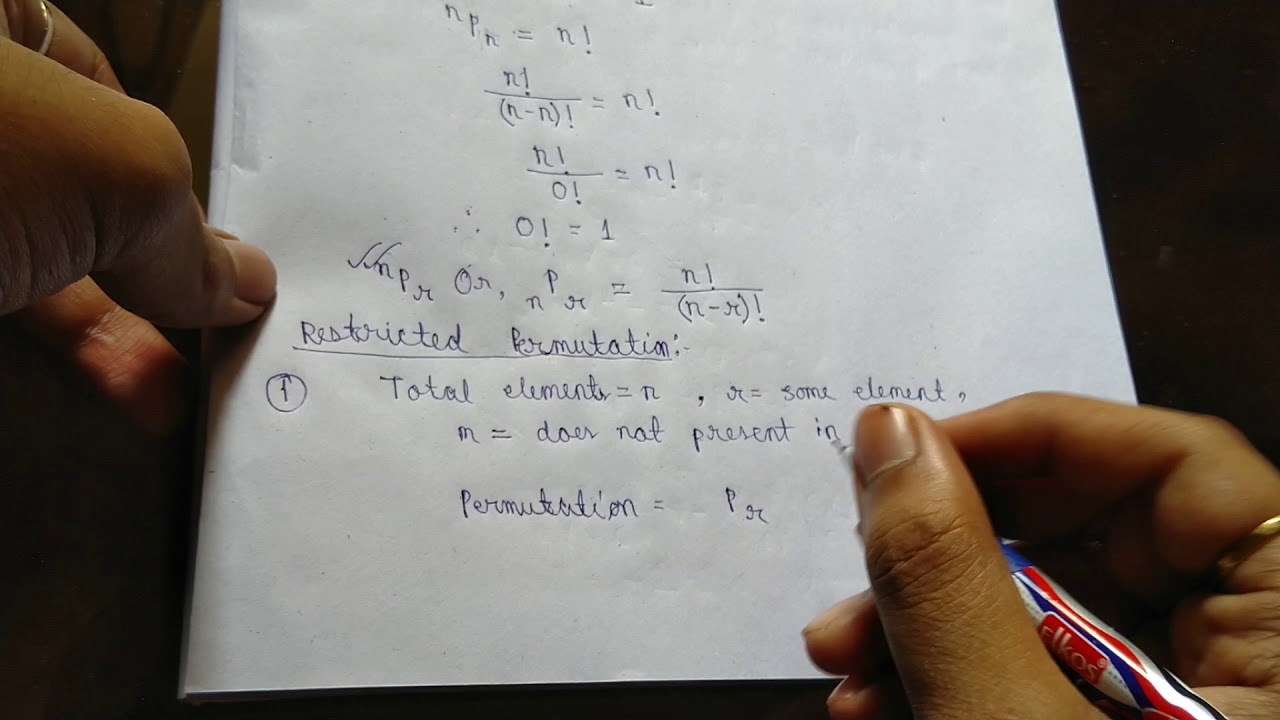 nPn = n!
n!/(n-n)! = n!
n!/0! = n!
∴ 0! = 1
✓✓ nPr Or, nPr = n!/(n-r)!
Restricted Permutation:-
① Total elements = n , r = some element,
m = does not present in
Permutation = Pr
Elkos